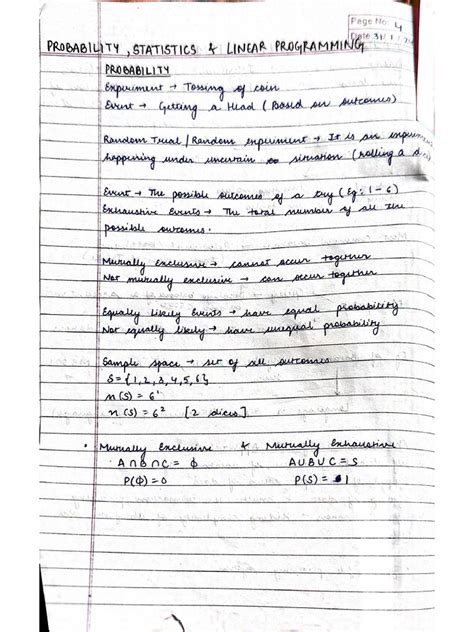 Page No: 4
Date: 31/1/
PROBABILITY, STATISTICS & LINEAR PROGRAMMING
PROBABILITY
Experiment → Tossing of coin
Event → Getting a Head (Based on outcomes)
Random Trial / Random experiment → It is an
happening under uncertain situation (rolling a dice)
Event → The possible outcomes of a try (Eg: 1-6)
Exhaustive Events → The total number of all the
possible outcomes.
Mutually Exclusive → cannot occur together
Not mutually exclusive → can occur together
Equally likely Events → have equal probability
Not equally likely → have unequal probability
Sample space → set of all outcomes
S = {1, 2, 3, 4, 5, 6}
n(S) = 6¹
n(S) = 6² [2 dices]
• Mutually Exclusive & Mutually Exhaustive
A∩B∩C = ϕ A∪B∪C = S
P(ϕ) = 0 P(S) = 1